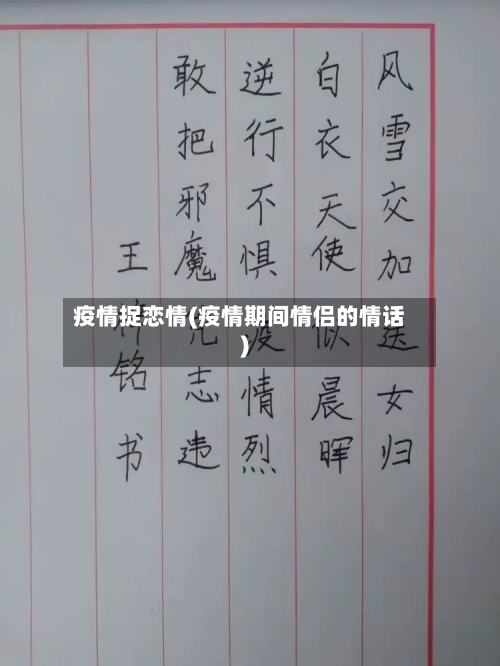 风雪交加送女归
白衣天使似晨晖
逆行不惧疫情烈
敢把邪魔志违
王铭书
疫情捉恋情(疫情期间情侣的情话
)